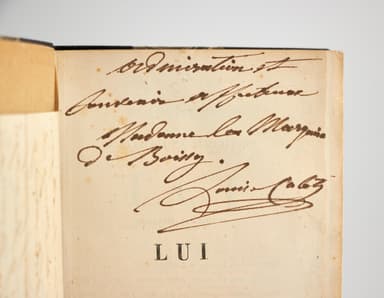 admiration et
Souvenir affectueux
Madame la Marquise
de Boissy.
Louise Colet
LUI